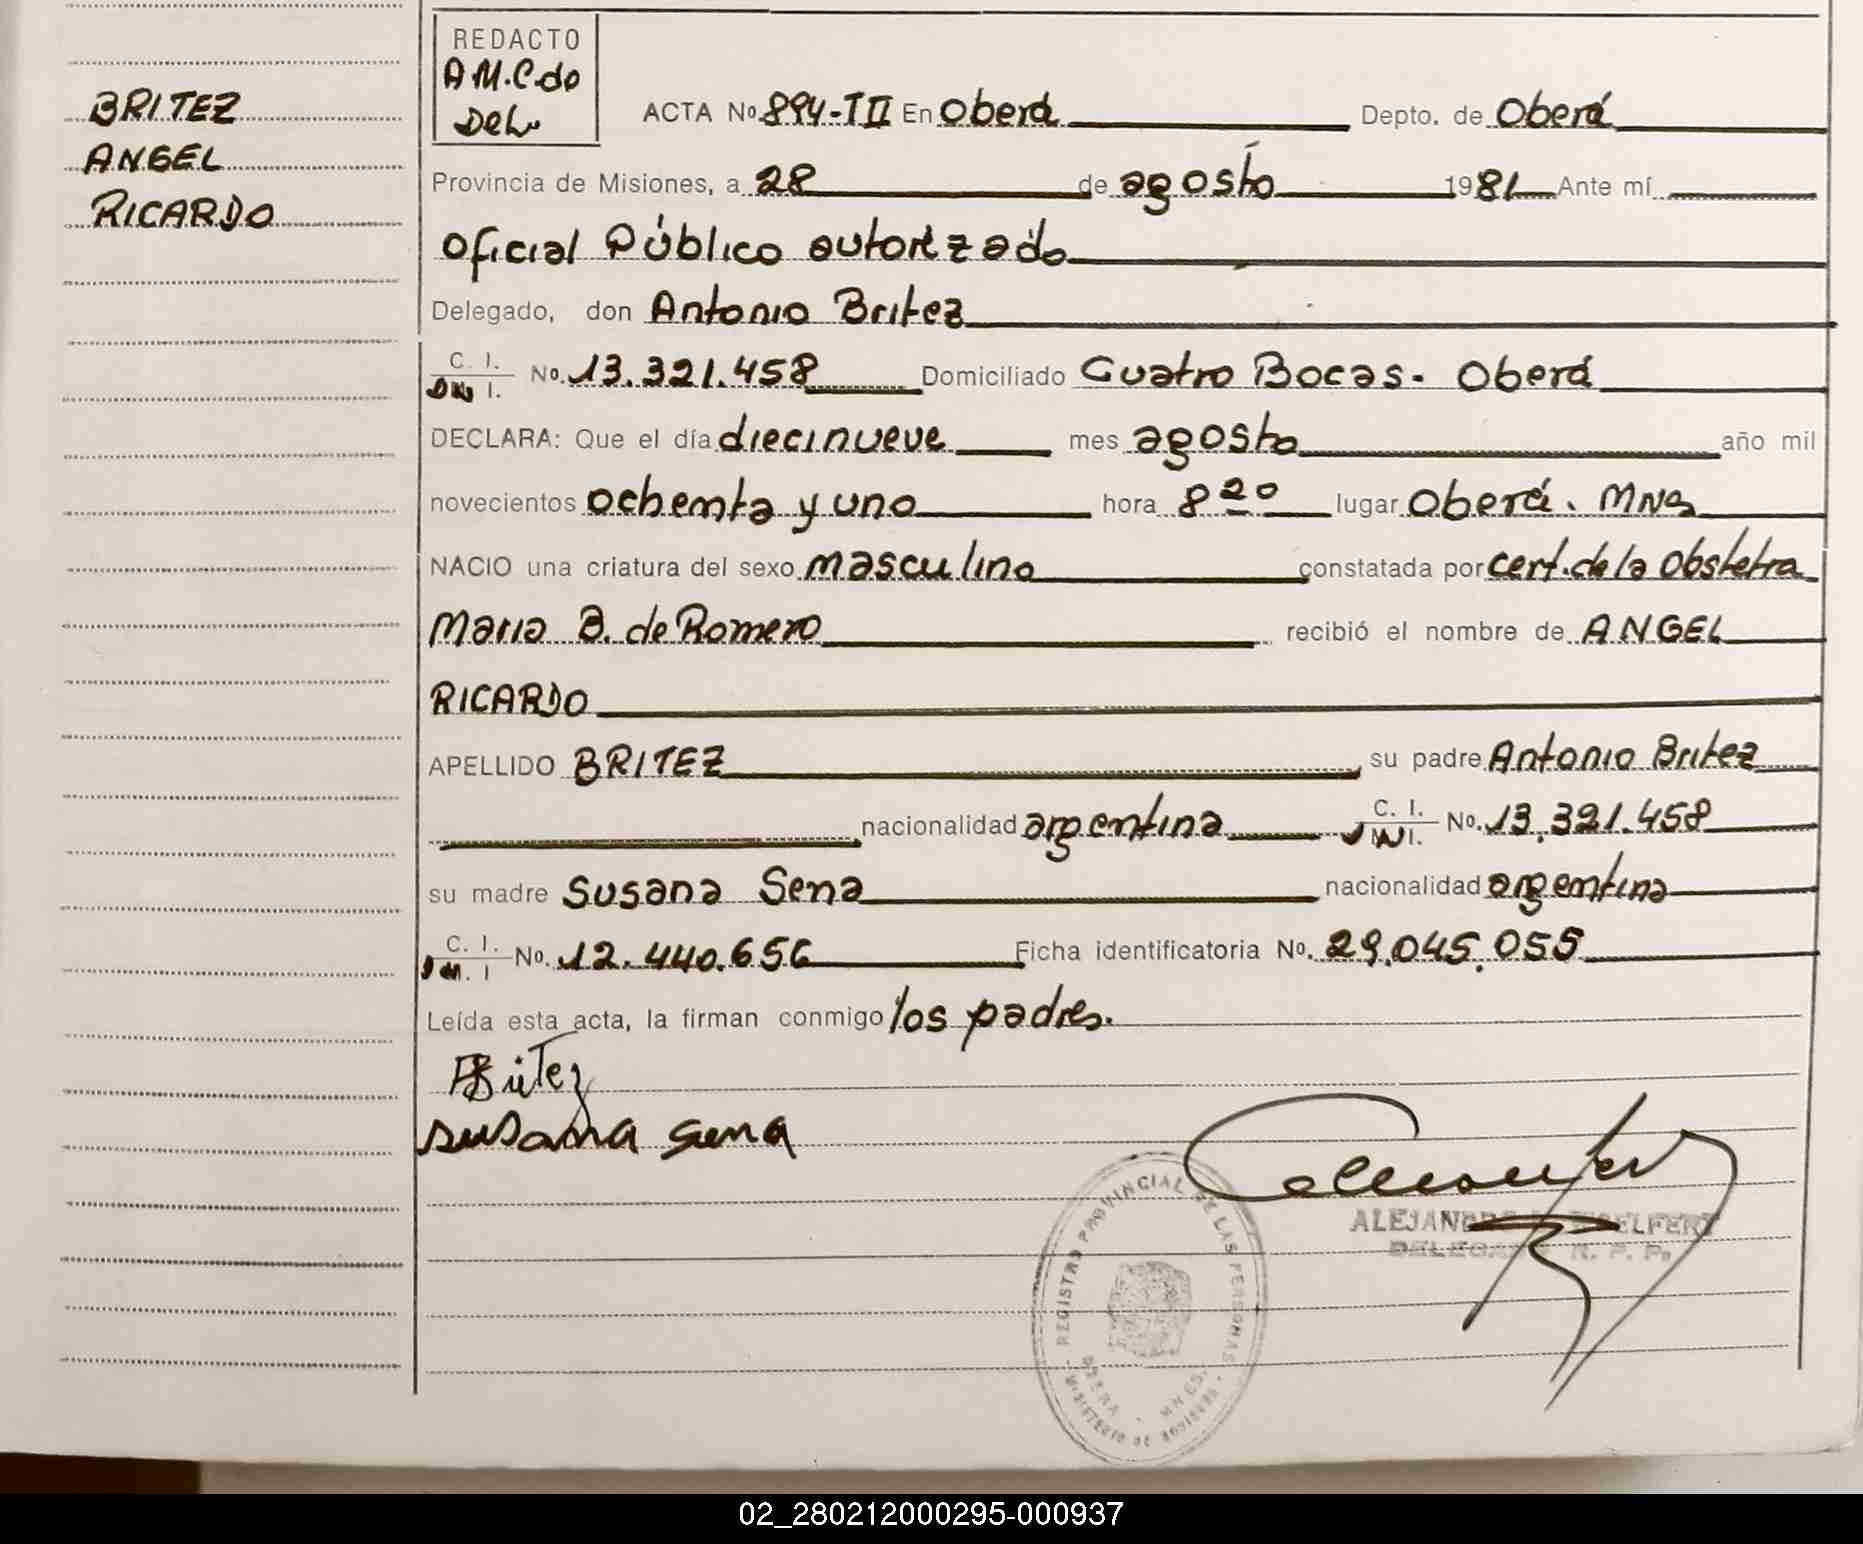 BRITEZ
ANGEL
RICARDO
REDACTO
A M.C.do
Del.
ACTA No. 894-TII En Oberá Depto. de Oberá
Provincia de Misiones, a 28 de agosto 1981 Ante mí
Oficial Público autorizado
Delegado, don Antonio Britez
C. I. No. 13.321.458 Domiciliado Cuatro Bocas - Oberá
DN I.
DECLARA: Que el día diecinueve mes agosto año mil
novecientos ochenta y uno hora 8 20 lugar Oberá. MNS
NACIO una criatura del sexo masculino constatada por cert. de la Obstetra
Maria B. de Romero recibió el nombre de ANGEL
RICARDO
APELLIDO BRITEZ su padre Antonio Britez
nacionalidad argentina C. I. No. 13.321.458
su madre Susana Sena nacionalidad argentina
C. I. No. 12.440.656 Ficha identificatoria No. 29.045.055
Leída esta acta, la firman conmigo los padres.
Britez
Susana Sena
REGISTRO PROVINCIAL DE LAS PERSONAS
OBERA - MNES.
MINISTERIO DE GOBIERNO
DELEGADO R. P. P.
02_280212000295-000937